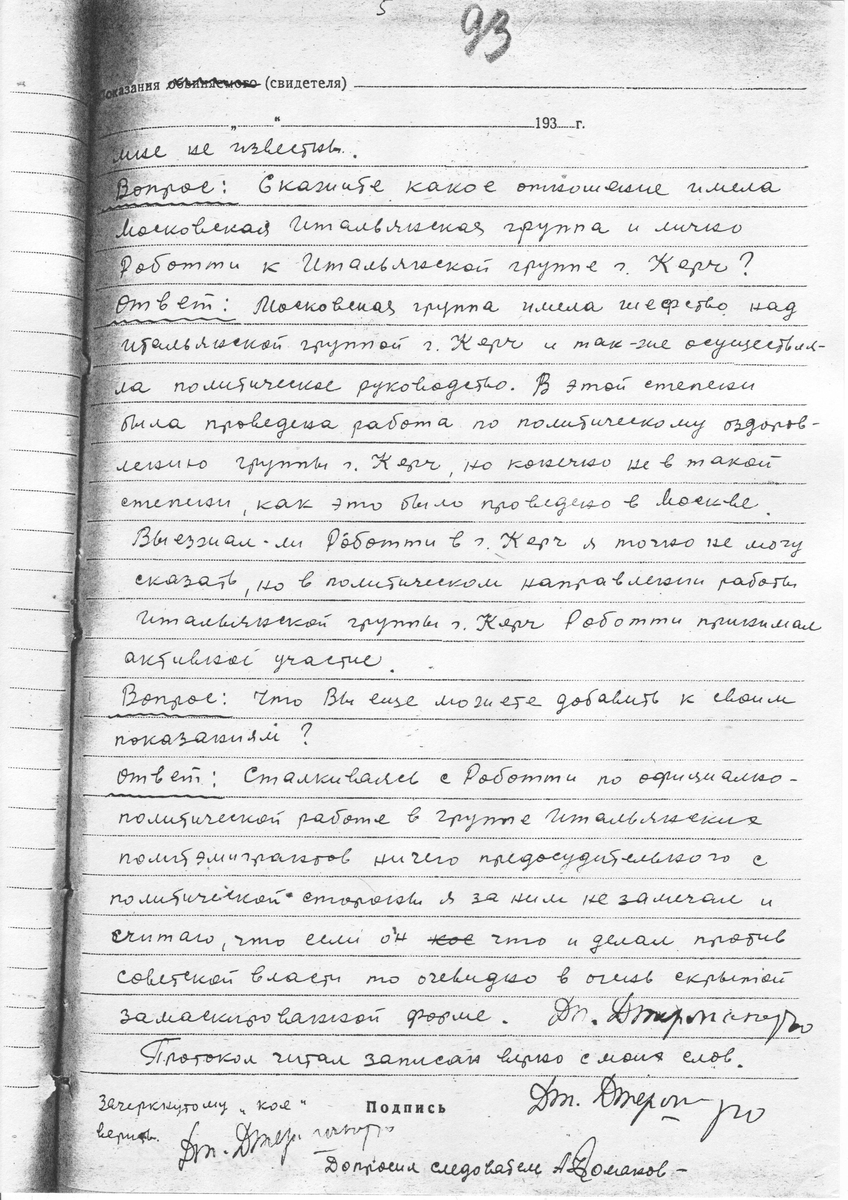 5
93
Показания обвиняемого (свидетеля)
„ “ 193 г.
мне не известны.
Вопрос: Скажите какое отношение имела
Московская Итальянская группа и лично
Роботти к Итальянской группе г. Керч?
Ответ: Московская группа имела шефство над
итальянской группой г. Керч и так-же осуществля-
ла политическое руководство. В этой степени
была проведена работа по политическому оздоров-
лению группы г. Керч, но конечно не в такой
степени, как это было проведено в Москве.
Выезжал-ли Роботти в г. Керч я точно не могу
сказать, но в политическом направлении работы
Итальянской группы г. Керч Роботти принимал
активное участие.
Вопрос: Что Вы еще можете добавить к своим
показаниям?
Ответ: Сталкиваясь с Роботти по официально-
политической работе в группе Итальянских
политэмигрантов ничего предосудительного с
политической стороны я за ним не замечал и
считаю, что если он кое что и делал против
советской власти то очевидно в очень скрытой
замаскированной форме.
Протокол читал записан верно с моих слов.
Зачеркнутому „кое“ Подпись
верить.
Допросил следователь